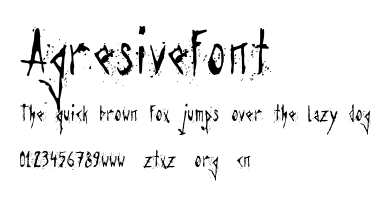 AgresiveFont
The quick brown fox jumps over the lazy dog
0123456789www ztxz org cn